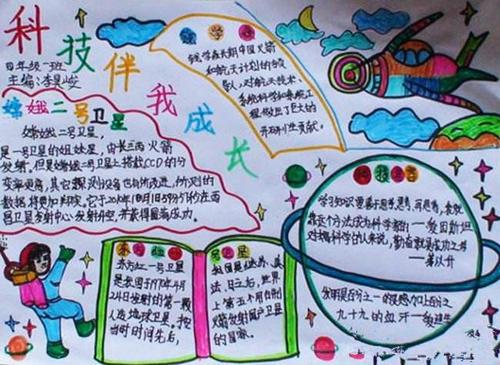 科技伴我成长
四年级一班
主编:李昊
钱学森
钱学森长期中国火箭
和航天计划的领导
人,对航天技术、
系统科学和系统工
程做出了巨大的
开拓性贡献。
嫦娥二号卫星
嫦娥二号卫星,
是一号卫星的姐妹星,由长三丙火箭
发射。但是嫦娥二号卫星上搭载CCD的分
辨率更高,其它探测设备也有所改进,所测到的
数据将更加详实。它于2010年10月1日18时59分57秒在西
昌卫星发射中心发射升空,并获得圆满成功。
东方红一号卫星
东方红一号卫星
是我国于1970年4月
24日发射的第一颗
人造地球卫星,按
当时时间先后,
我国是继苏、美、
法、日之后,世界
上第五个用自制
火箭发射国产卫星
的国家。
科技名言
学习知识要善于思考,思考,再思考,我就
靠这个方法成为科学家的——爱因斯坦
对搞科学的人来说,勤奋就是成功之母
——茅以升
发明是百分之一的灵感加上百分之
九十九的血汗—爱迪生